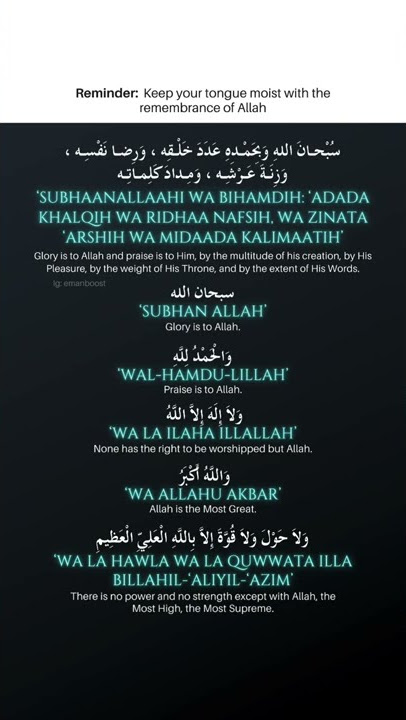 Reminder: Keep your tongue moist with the
remembrance of Allah
سُبْحَـانَ اللهِ وَبِحَمْـدِهِ عَدَدَ خَلْـقِه ، وَرِضـا نَفْسِـه ،
وَزِنَـةَ عَـرْشِـه ، وَمِـدادَ كَلِمـاتِـه
'SUBHAANALLAAHI WA BIHAMDIH: 'ADADA
KHALQIH WA RIDHAA NAFSIH, WA ZINATA
'ARSHIH WA MIDAADA KALIMAATIH'
Glory is to Allah and praise is to Him, by the multitude of his creation, by His
Pleasure, by the weight of His Throne, and by the extent of His Words.
Ig: emanboost
سبحان الله
'SUBHAN ALLAH'
Glory is to Allah.
وَالْحَمْدُ لِلَّهِ
'WAL-HAMDU-LILLAH'
Praise is to Allah.
وَلاَ إِلَهَ إِلاَّ اللَّهُ
'WA LA ILAHA ILLALLAH'
None has the right to be worshipped but Allah.
وَاللَّهُ أَكْبَرُ
'WA ALLAHU AKBAR'
Allah is the Most Great.
وَلاَ حَوْلَ وَلاَ قُوَّةَ إِلاَّ بِاللَّهِ الْعَلِيِّ الْعَظِيمِ
'WA LA HAWLA WA LA QUWWATA ILLA
BILLAHIL-'ALIYIL-'AZIM'
There is no power and no strength except with Allah, the
Most High, the Most Supreme.